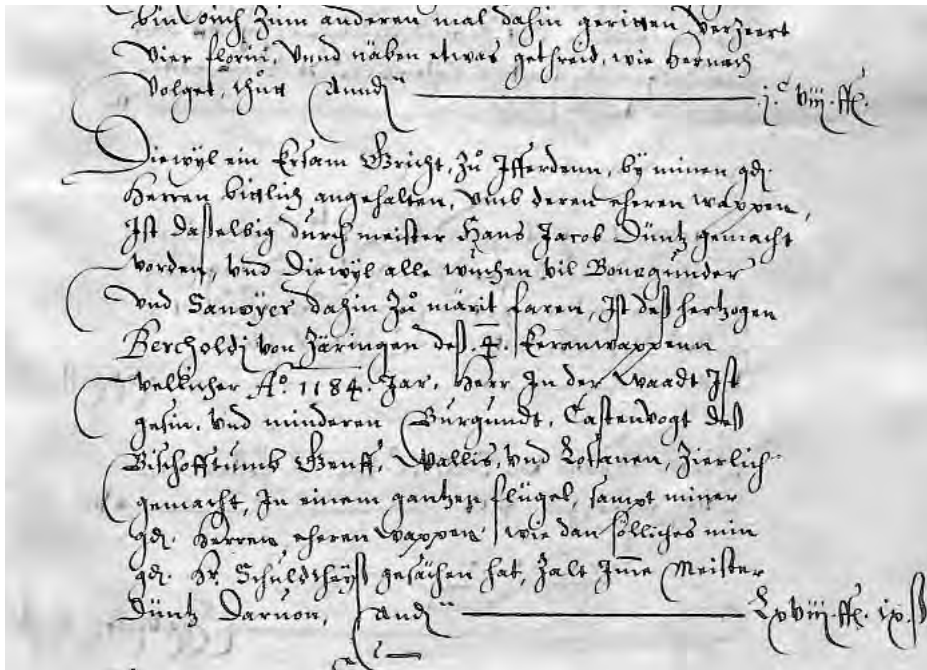 bin Ouch zum anderen mal dahin geritten verzeert
Vier florin, Vnnd näben etwas gethreid, wie hernach
Volget, thůtt Annd
j.c viij. ff.
Diewyl ein Ersam Gricht, zů Ifferdenn, by minen gd.
Herren bittlich angehalten, vmb deren eheren wappen,
Ist daßelbig durch meister Hans Jacob Düntz gemacht
worden, vnd Diewyl alle wuchen vil Bourgunder
Vnd Sanoyer dahin zů märit faren, Ist deß hertzogen
Bercholdj von Zäringen deß .4. Eerenwappenn
wellicher A.o 1184. Jar, Herr In der Waadt Ist
gesin, vnd minderen Burgundt, Castenvogt deß
Bischofftumb Genff, Wallis, vnd Losanen, Zierlich
gemacht, In einem gantzen flügel, sampt miner
gd. Herren eheren Wappen wie dan sölliches min
gd. Hr. Schuldtheyß gesächen hat, Zalt Ime Meister
Düntz Daruon, And
Lxviij. ff. ix. ß